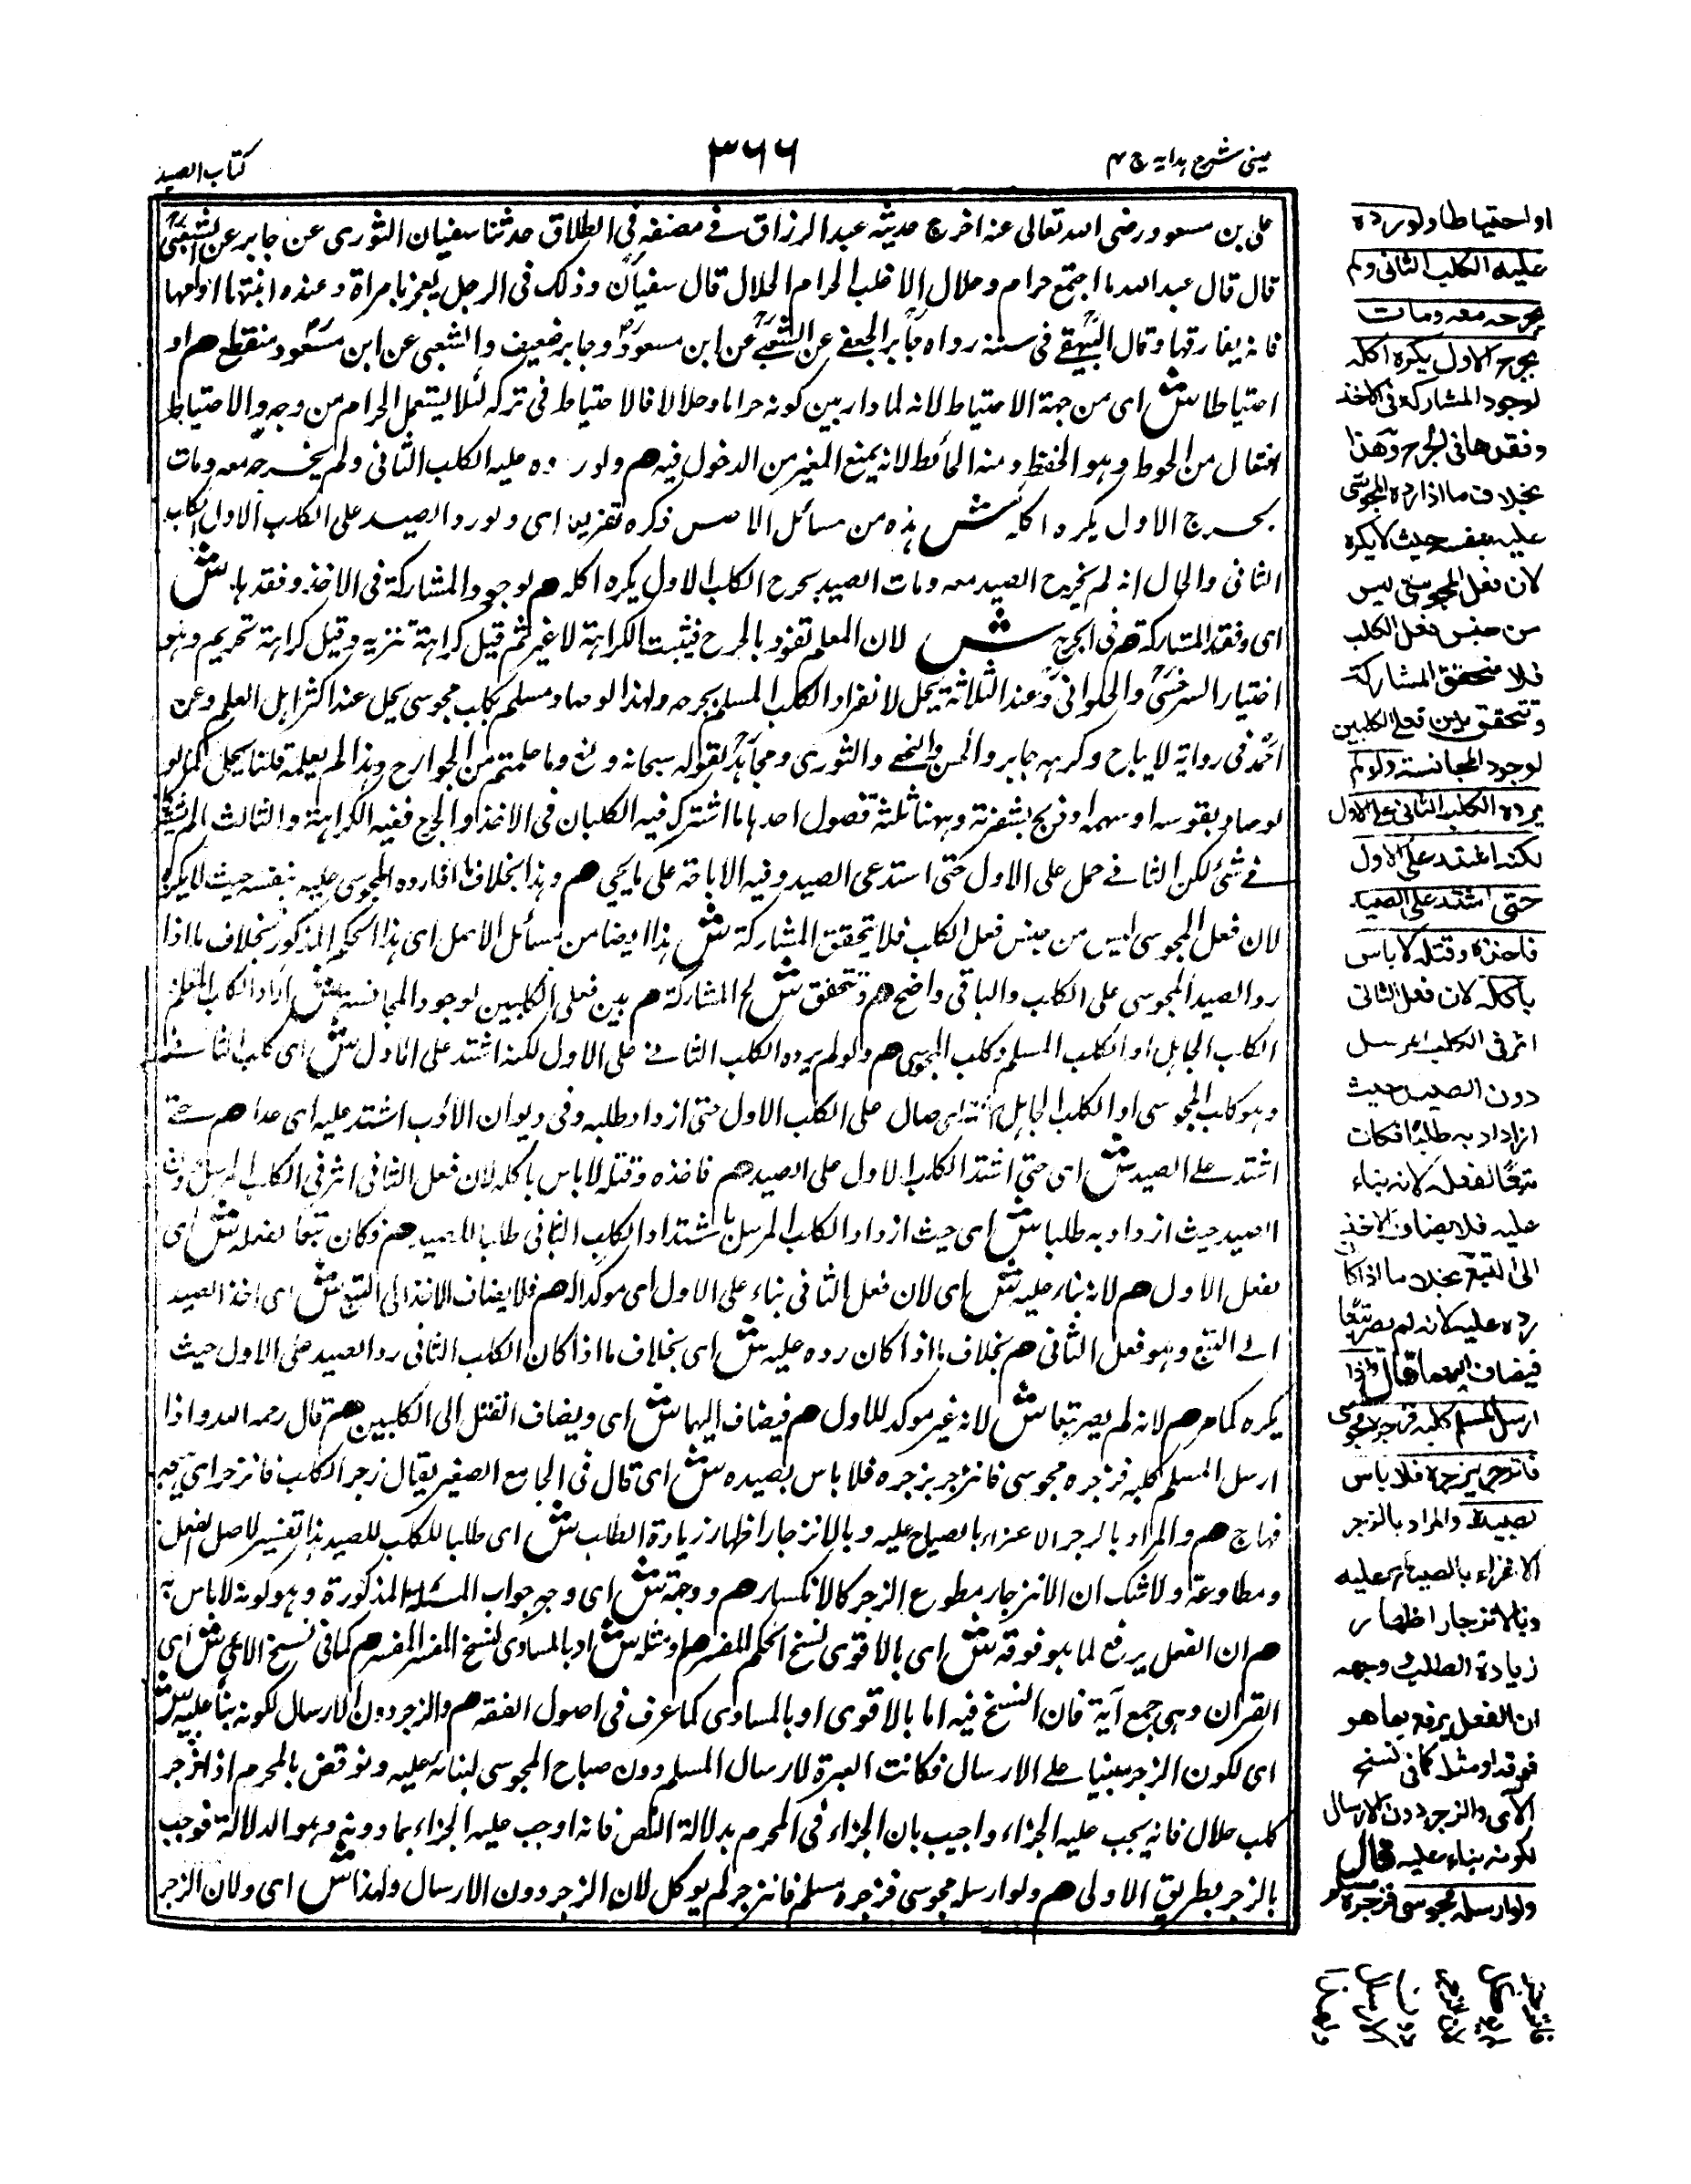 عینی شرح ہدایہ ج ۴
۳۶۶
کتاب الصید
علی بن مسعود رضی اللہ تعالی عنہ اخرج حدیثہ عبدالرزاق فے مصنفہ فی الطلاق حدثنا سفیان الثوری عن جابر عن الشعبی
قال قال عبداللہ ما اجتمع حرام وحلال الا غلب الحرام الحلال قال سفیان وذلک فی الرجل یفجر بامراۃ وعندہ ابنتہا او امہا
فانہ یفارقہا وقال البیہقے فی سننہ رواہ جابر الجعفے عن الشعبے عن ابن مسعود وجابر ضعیف والشعبی عن ابن مسعود منقطع ھم او
احتیاطا ش ای من جہۃ الاحتیاط لانہ لما دار بین کونہ حراما وحلالا فالاحتیاط فی ترکہ لئلا یستعمل الحرام من وجہ والاحتیاط
افتعال من الحوط وہو الحفظ ومنہ الحائط لانہ یمنع الغیر من الدخول فیہ ھم ولو ردہ علیہ الکلب الثانی ولم یجرحہ معہ ومات
بجرح الاول یکرہ اکلہ ش ہذہ من مسائل الاصل ذکرہ تفریعا ای ولو رد الصید علی الکلب الاول الکلب
الثانی والحال انہ لم یجرح الصید معہ ومات الصید بجرح الکلب الاول یکرہ اکلہ ھم لوجود المشارکۃ فی الاخذ وفقدہا ش
ای وفقد المشارکۃ ھم فی الجرح ش لان المعلم تفرد بالجرح فیثبت الکراہۃ لا غیر ثم قیل کراہۃ تنزیہ وقیل کراہۃ تحریم وہو
اختیار السرخسی والحلوانی وعند الثلاثۃ یحل لانفراد الکلب المسلم بجرحہ ولہذا لو صاد مسلم بکلب مجوسی یحل عند اکثر اہل العلم وعن
احمد فی روایۃ لا یباح وکرہہ جابر والحسن والنخعے والثوری ومجاہد لقولہ سبحانہ وتع وما علمتم من الجوارح وہذا لم یعلمہ قلنا یحل کما لو
لو صاد بقوسہ او سہمہ او ذبح بشفرتہ وہہنا ثلثۃ فصول احدہا ما اشترک فیہ الکلبان فی الاخذ او الجرح ففیہ الکراہۃ والثالث لم یشترکا
فے شئی لکن الثانے حمل علی الاول حتی استدعی الصید وفیہ الاباحۃ علی ما یجی ھم وہذا بخلاف ما اذا ردہ المجوسی علیہ بنفسہ حیث لا یکرہ
لان فعل المجوسی لیس من جنس فعل الکلب فلا یتحقق المشارکۃ ش ہذا ایضا من مسائل الاصل ای ہذا الحکم المذکور بخلاف ما اذا
رد الصید المجوسی علی الکلب والباقی واضح ھم وتتحقق ش ای المشارکۃ ھم بین فعلی الکلبین لوجود المجانسۃ ش اراد الکلب المعلم
الکلب الجاہل او الکلب المسلم وکلب المجوسی ھم ولو لم یردہ الکلب الثانے علی الاول لکنہ اشتد علی الاول ش ای کلب الثانے
وہو کلب المجوسی او الکلب الجاہل ای صال علی الکلب الاول حتی ازداد طلبہ وفی دیوان الادب اشتد علیہ ای عدا ھم حتے
اشتد علے الصید ش ای حتی اشتد الکلب الاول علی الصید ھم فاخذہ وقتلہ لا باس باکلہ لان فعل الثانی اثر فی الکلب المرسل دون
الصید حیث ازداد بہ طلبا ش ای حیث ازداد الکلب المرسل باشتداد الکلب الثانی طلبا للصید ھم فکان تبعا لفعلہ ش ای
لفعل الاول ھم لانہ بناء علیہ ش ای لان فعل الثانی بناء علی الاول ای موکد لہ ھم فلا یضاف الاخذ الی التبع ش ای اخذ الصید
الے التبع وہو فعل الثانی ھم بخلاف ما اذا کان ردہ علیہ ش ای بخلاف ما اذا کان الکلب الثانی رد الصید علی الاول حیث
یکرہ کما مر ھم لانہ لم یصر تبعا ش لانہ غیر موکد للاول ھم فیضاف الیہما ش ای ویضاف القتل الی الکلبین ھم قال رحمہ اللہ واذا
ارسل المسلم کلبہ فزجرہ مجوسی فانزجر بزجرہ فلا باس بصیدہ ش ای قال فی الجامع الصغیر یقال زجر الکلب فانزجر ای ہیجہ
فہاج ھم والمراد بالزجر الاغراء بالصیاح علیہ وبالانزجار اظہار زیادۃ الطلب ش ای طلبا للکلب للصید ہذا تفسیر لاصل الفعل
ومطاوعۃ ولا شک ان الانزجار مطوع الزجر کالانکسار ھم ووجہہ ش ای وجہ جواب المسئلۃ المذکورۃ وہو کونہ لا باس بہ
ھم ان الفعل یرفع لما ہو فوقہ ش ای بالاقوی نسخ الحکم للمفسر ھم او مثلہ ش او بالمساوی کنسخ المفسر المفسر ھم کما فی نسخ الآی ش ای
القران وہی جمع آیۃ فان النسخ فیہ اما بالاقوی او بالمساوی کما عرف فی اصول الفقہ ھم والزجر دون الارسال لکونہ بناء علیہ ش
ای لکون الزجر مبنیا علے الارسال فکانت العبرۃ لارسال المسلم دون صیاح المجوسی لبنائہ علیہ ونوقض بالمحرم اذا زجر
کلب حلال فانہ یجب علیہ الجزاء واجیب بان الجزاء فی المحرم بدلالۃ النص فانہ اوجب علیہ الجزاء بما دونہ وہو الدلالۃ فوجب
بالزجر بطریق الاولی ھم ولو ارسلہ مجوسی فزجرہ مسلم فانزجر لم یوکل لان الزجر دون الارسال ولہذا ش ای ولان الزجر
او احتیاطا ولو ردہ
علیہ الکلب الثانی ولم
یجرحہ معہ ومات
بجرح الاول یکرہ اکلہ
لوجود المشارکۃ فی الاخذ
وفقدھا فی الجرح وھذا
بخلاف ما اذا ردہ المجوسی
علیہ بنفسہ حیث لا یکرہ
لان فعل المجوسی لیس
من جنس فعل الکلب
فلا یتحقق المشارکۃ
وتتحقق بین فعلی الکلبین
لوجود المجانسۃ ولو لم
یردہ الکلب الثانی علی الاول
لکنہ اشتد علی الاول
حتی اشتد علی الصید
فاخذہ وقتلہ لا باس
باکلہ لان فعل الثانی
اثر فی الکلب المرسل
دون الصید حیث
ازداد بہ طلبا فکان
تبعًا لفعلہ لانہ بناء
علیہ فلا یضاف الاخذ
الی التبع بخلاف ما اذا کان
ردہ علیہ لانہ لم یصر تبعًا
فیضاف الیھما قال واذا
ارسل المسلم کلبہ فزجرہ مجوسی
فانزجر بزجرہ فلا باس
بصیدہ والمراد بالزجر
الاغراء بالصیاح علیہ
وبالانزجار اظھار
زیادۃ الطلب وجھہ
ان الفعل یرفع بما ھو
فوقہ او مثلہ کما فی نسخ
الآی والزجر دون الارسال
لکونہ بناء علیہ قال
ولو ارسلہ مجوسی فزجرہ مسلم